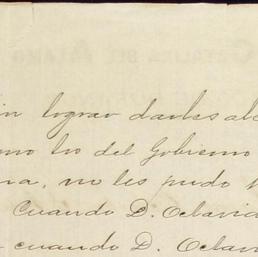 CATALINA DEL ALAMO
in lograr darles al
no los del Gobierno
na, no les pudo
Cuando D. Octavia
cuando D. Octav